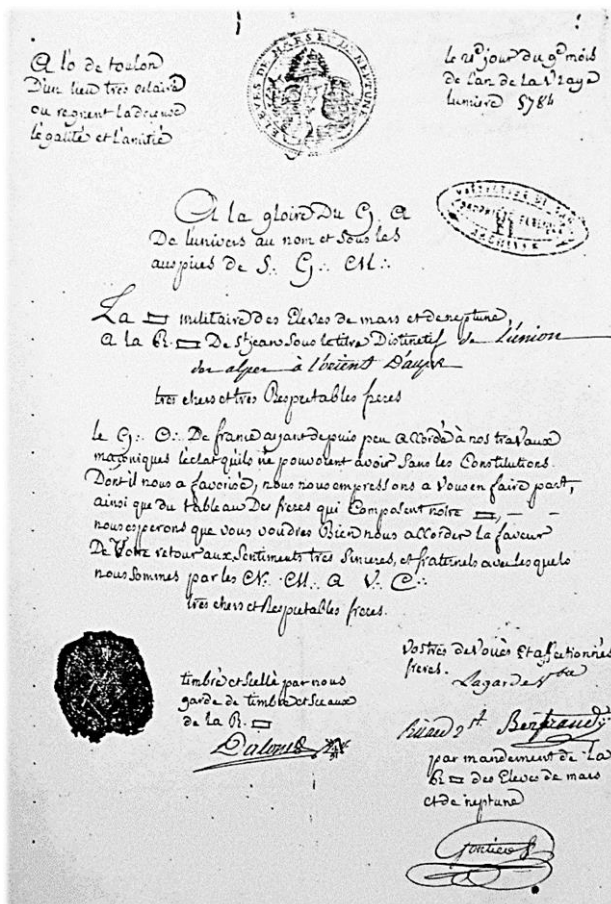 A l'o de toulon
D'un lieu très eclairé
ou regnent la
legalité et l'amitié
ELEVES DE MARS ET DE NEPTUNE
le 21e jour du 9e mois
de l'an de la Vraye
lumiere 5784
A la gloire Du G. A
De l'univers au nom et sous les
auspices de S∴ G∴ M∴
ARCHIVES
La ▭ militaire des Eleves de mars et de neptune,
A la R. ▭ De St jean Sous le titre Distinctif de l'union
des alpes à l'orient D'aups
très chers et très Respectables freres
le G∴ O∴ De france ayant depuis peu accordé à nos travaux
maçoniques l'éclat qu'ils ne pouvoient avoir Sans les Constitutions.
Dont il nous a favorisé, nous nous empressons a Vous en faire part,
ainsi que du tableau Des freres qui Composent notre ▭, — —
nous esperons que vous voudres Bien nous accorder la faveur
De Votre retour aux Sentiments très Sinceres, et fraternels avec lesquels
nous Sommes par les N∴ M∴ A V∴ C∴
très chers et Respectables freres.
timbré et Scellé par nous
garde de timbre et Sceaux
de la R. ▭
Vostres devoués Et affectionnés
freres.
Lagarde Vble
2 St Bertrand
par mandement de La
R ▭ des Eleves de mars
et de neptune